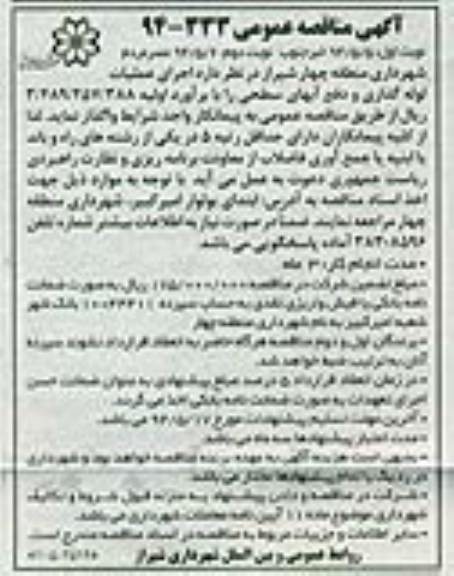 آگهی مناقصه عمومی ۳۳۳-۹۴
نوبت اول: ۹۴/۵/۵ خبرجنوب نوبت دوم: ۹۴/۵/۶ عصرمردم
شهرداری منطقه چهار شیراز در نظر دارد اجرای عملیات
لوله گذاری و دفع آبهای سطحی را با برآورد اولیه ۳/۴۸۹/۲۵۷/۳۸۸
ریال از طریق مناقصه عمومی به پیمانکار واجد شرایط واگذار نماید. لذا
از کلیه پیمانکاران دارای حداقل رتبه ۵ در یکی از رشته های راه و باند
یا ابنیه یا جمع آوری فاضلاب از معاونت برنامه ریزی و نظارت راهبردی
ریاست جمهوری دعوت به عمل می آید با توجه به موارد ذیل جهت
اخذ اسناد مناقصه به آدرس: ابتدای بولوار امیرکبیر، شهرداری منطقه
چهار مراجعه نمایند. ضمناً در صورت نیاز به اطلاعات بیشتر شماره تلفن
۳۸۳۰۸۵۹۶ آماده پاسخگویی می باشد.
• مدت انجام کار: ۳ ماه
• مبلغ تضمین شرکت در مناقصه ۱۷۵/۰۰۰/۰۰۰ ریال به صورت ضمانت
نامه بانکی یا فیش واریزی نقدی به حساب سپرده بانک شهر
شعبه امیرکبیر به نام شهرداری منطقه چهار
• برندگان اول و دوم مناقصه هرگاه حاضر به انعقاد قرارداد نشوند سپرده
آنان به ترتیب ضبط خواهد شد.
• در زمان انعقاد قرارداد ۵ درصد مبلغ پیشنهادی به عنوان ضمانت حسن
اجرای تعهدات به صورت ضمانت نامه بانکی اخذ می گردد.
• آخرین مهلت تسلیم پیشنهادات مورخ ۹۴/۵/۱۷ می باشد.
• مدت اعتبار پیشنهادها سه ماه می باشد.
• بدیهی است هزینه آگهی به عهده برنده مناقصه خواهد بود و شهرداری
در رد یک یا تمام پیشنهادها مختار می باشد.
• شرکت در مناقصه و دادن پیشنهاد به منزله قبول شروط و تکالیف
شهرداری موضوع ماده ۱۱ آیین نامه معاملات شهرداری می باشد.
• سایر اطلاعات و جزییات مربوط به مناقصه در اسناد مناقصه مندرج است.
روابط عمومی و بین الملل شهرداری شیراز